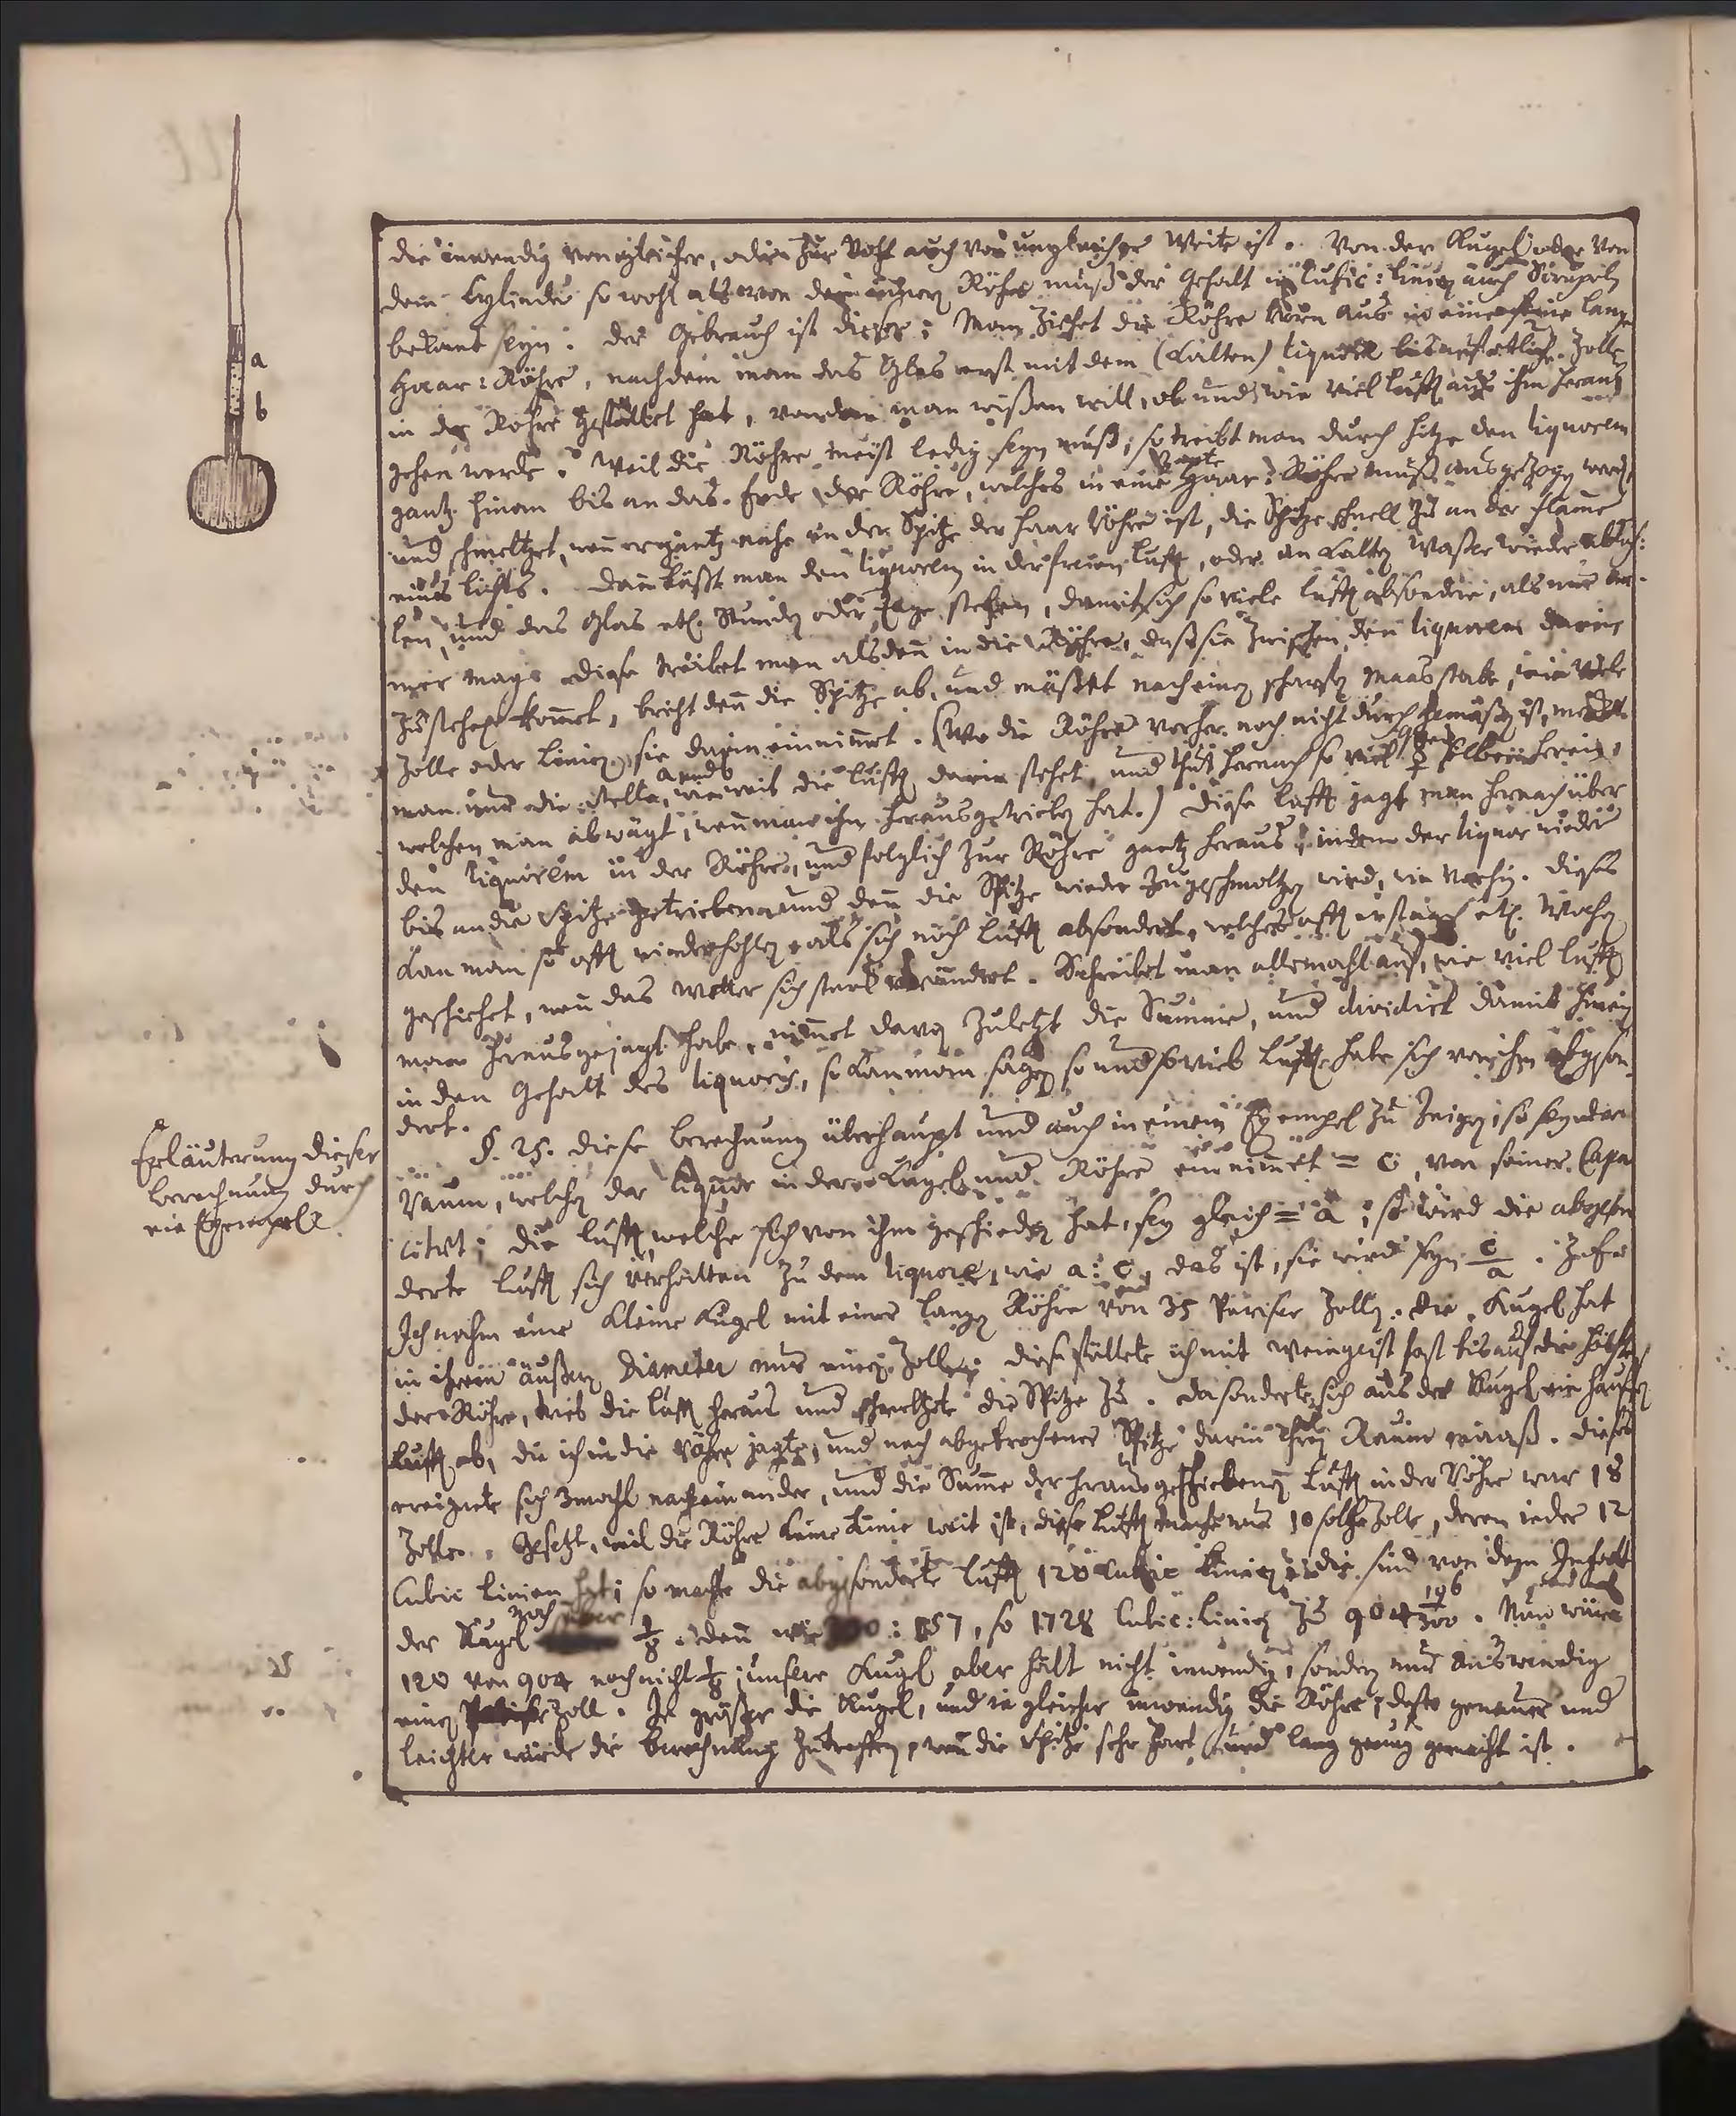 die inwendig von gleicher, oder zur Noth auch von ungleicher Weite ist. Von der Kugel oder von
dem Cylinder so wohl als von der Röhre muß der Gehalt in Cubic: linien auch Scrupeln
bekant seyn. Der Gebrauch ist dieser: Man ziehet die Röhre vorn aus in eine feine lange
Haar: Röhre, nachdem man das Glas erst mit dem (kalten) liquore bis auf etliche Zolle
in der Röhre gefüllet hat, von dem man wißen will, ob und wie viel lufft aus ihm heraus
gehen werde. Weil die Röhre meist ledig seyn muß, so treibt man durch hitze den liquorem
gantz hinan bis an das Ende der Röhre, welches in eine zarte Haar: Röhre muß ausgezogen werden
und schmeltzet, wenn er gantz nahe an der Spitze der Haar Röhre ist, die Spitze schnell zu an der flamme
eines lichts. Dann läßt man den liquorem in der freien lufft, oder an kalten Waßer wieder abküh:
len, und das Glas etl. Stunden oder Tage stehen, damit sich so viele lufft absondere, als nur im-
mer mag. Diese treibet man alsdenn in die Röhre, daß sie zwischen den liquorem darein
zu stehen kommt, bricht denn die Spitze ab, und mäßet nach einem scharfen Maasstabe, wie viele
Zolle oder linien sie darin einnimmt. (Wo die Röhre vorher noch nicht durchgemäßen ist, merket
man nur die Stelle a und b, wie weit die lufft darin stehet, und thut hernach so viel ☿ selben hinein,
welchen man abwägt, wenn man ihn herausgetrieben hat.) Diese lufft jagt man hernach über
den liquorem in der Röhre, und folglich zur Röhre gantz heraus, indem der liquor wieder
bis an die Spitze getrieben und denn die Spitze wieder zugeschmoltzen wird, wie vorhin. Dieses
kan man so offt wiederhohlen, als sich noch lufft absondert, welches offt erst nach etl. Wochen
geschiehet, wenn das Wetter sich starck verändert. Schreibet man allemahl auf, wie viel lufft
man herausgejagt habe, nimmt davon zuletzt die Summe, und dividirt damit hinein
in den Gehalt des liquoris, so kan man sagen so und so viel lufft habe sich von ihm abgeson-
dert.
§. 25. Diese berechnung überhaupt und auch in einem Exempel zu zeigen, so sey der
Raum, welchen der liquor in der Kugel und Röhre einnimmt = c, von seiner Capa
citaet; die lufft, welche sich von ihm geschieden hat, sey gleich = a, so wird die abgeson
derte lufft sich verhalten zu dem liquore, wie a : c, das ist, sie wird seyn c/a.
Ich nahm eine kleine Kugel mit einer langen Röhre von 35 Pariser Zollen. Die Kugel hat
in ihrem äußern Diameter nur einen Zoll. Diese füllete ich mit Weingeist fast bis auf die hälfte
der Röhre, trieb die lufft heraus und schmeltzete die Spitze zu. Da sonderte sich aus der Kugel ein hauffen
lufft ab, die ich in die Röhre jagte, und nach abgebrochener Spitze darin ihren Raum maaß. Dieses
ereignete sich 3mahl nach einander, und die Summe der herausgeschiedenen lufft in der Röhre war 18
Zolle. Gesetzt, weil die Röhre keine Linie weit ist, diese lufft mache nur 10 solche Zolle, deren ieder 12
Cubic linien hat; so machte die abgesonderte lufft 120 Cubic Linien, die sind von dem Inhalt
der Kugel noch über 1/8. Denn wie 300 : 157, so 1728 Cubic: linien zu 904 96/300. Nun wären
120 von 904 noch nicht 1/8; unsere Kugel aber hält nicht inwendig, sondern nur auswendig
einen Pariser Zoll. Je größer die Kugel, und ie gleicher inwendig die Röhre, desto genauer und
leichter würde die berechnung zutreffen, wenn die Spitze sehr zart und lang genug gemacht ist.
Erläuterung dieser
berechnung durch
ein Exempel.
a
b